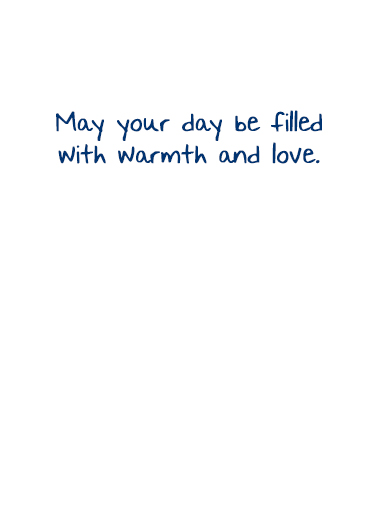 May your day be filled
with warmth and love.